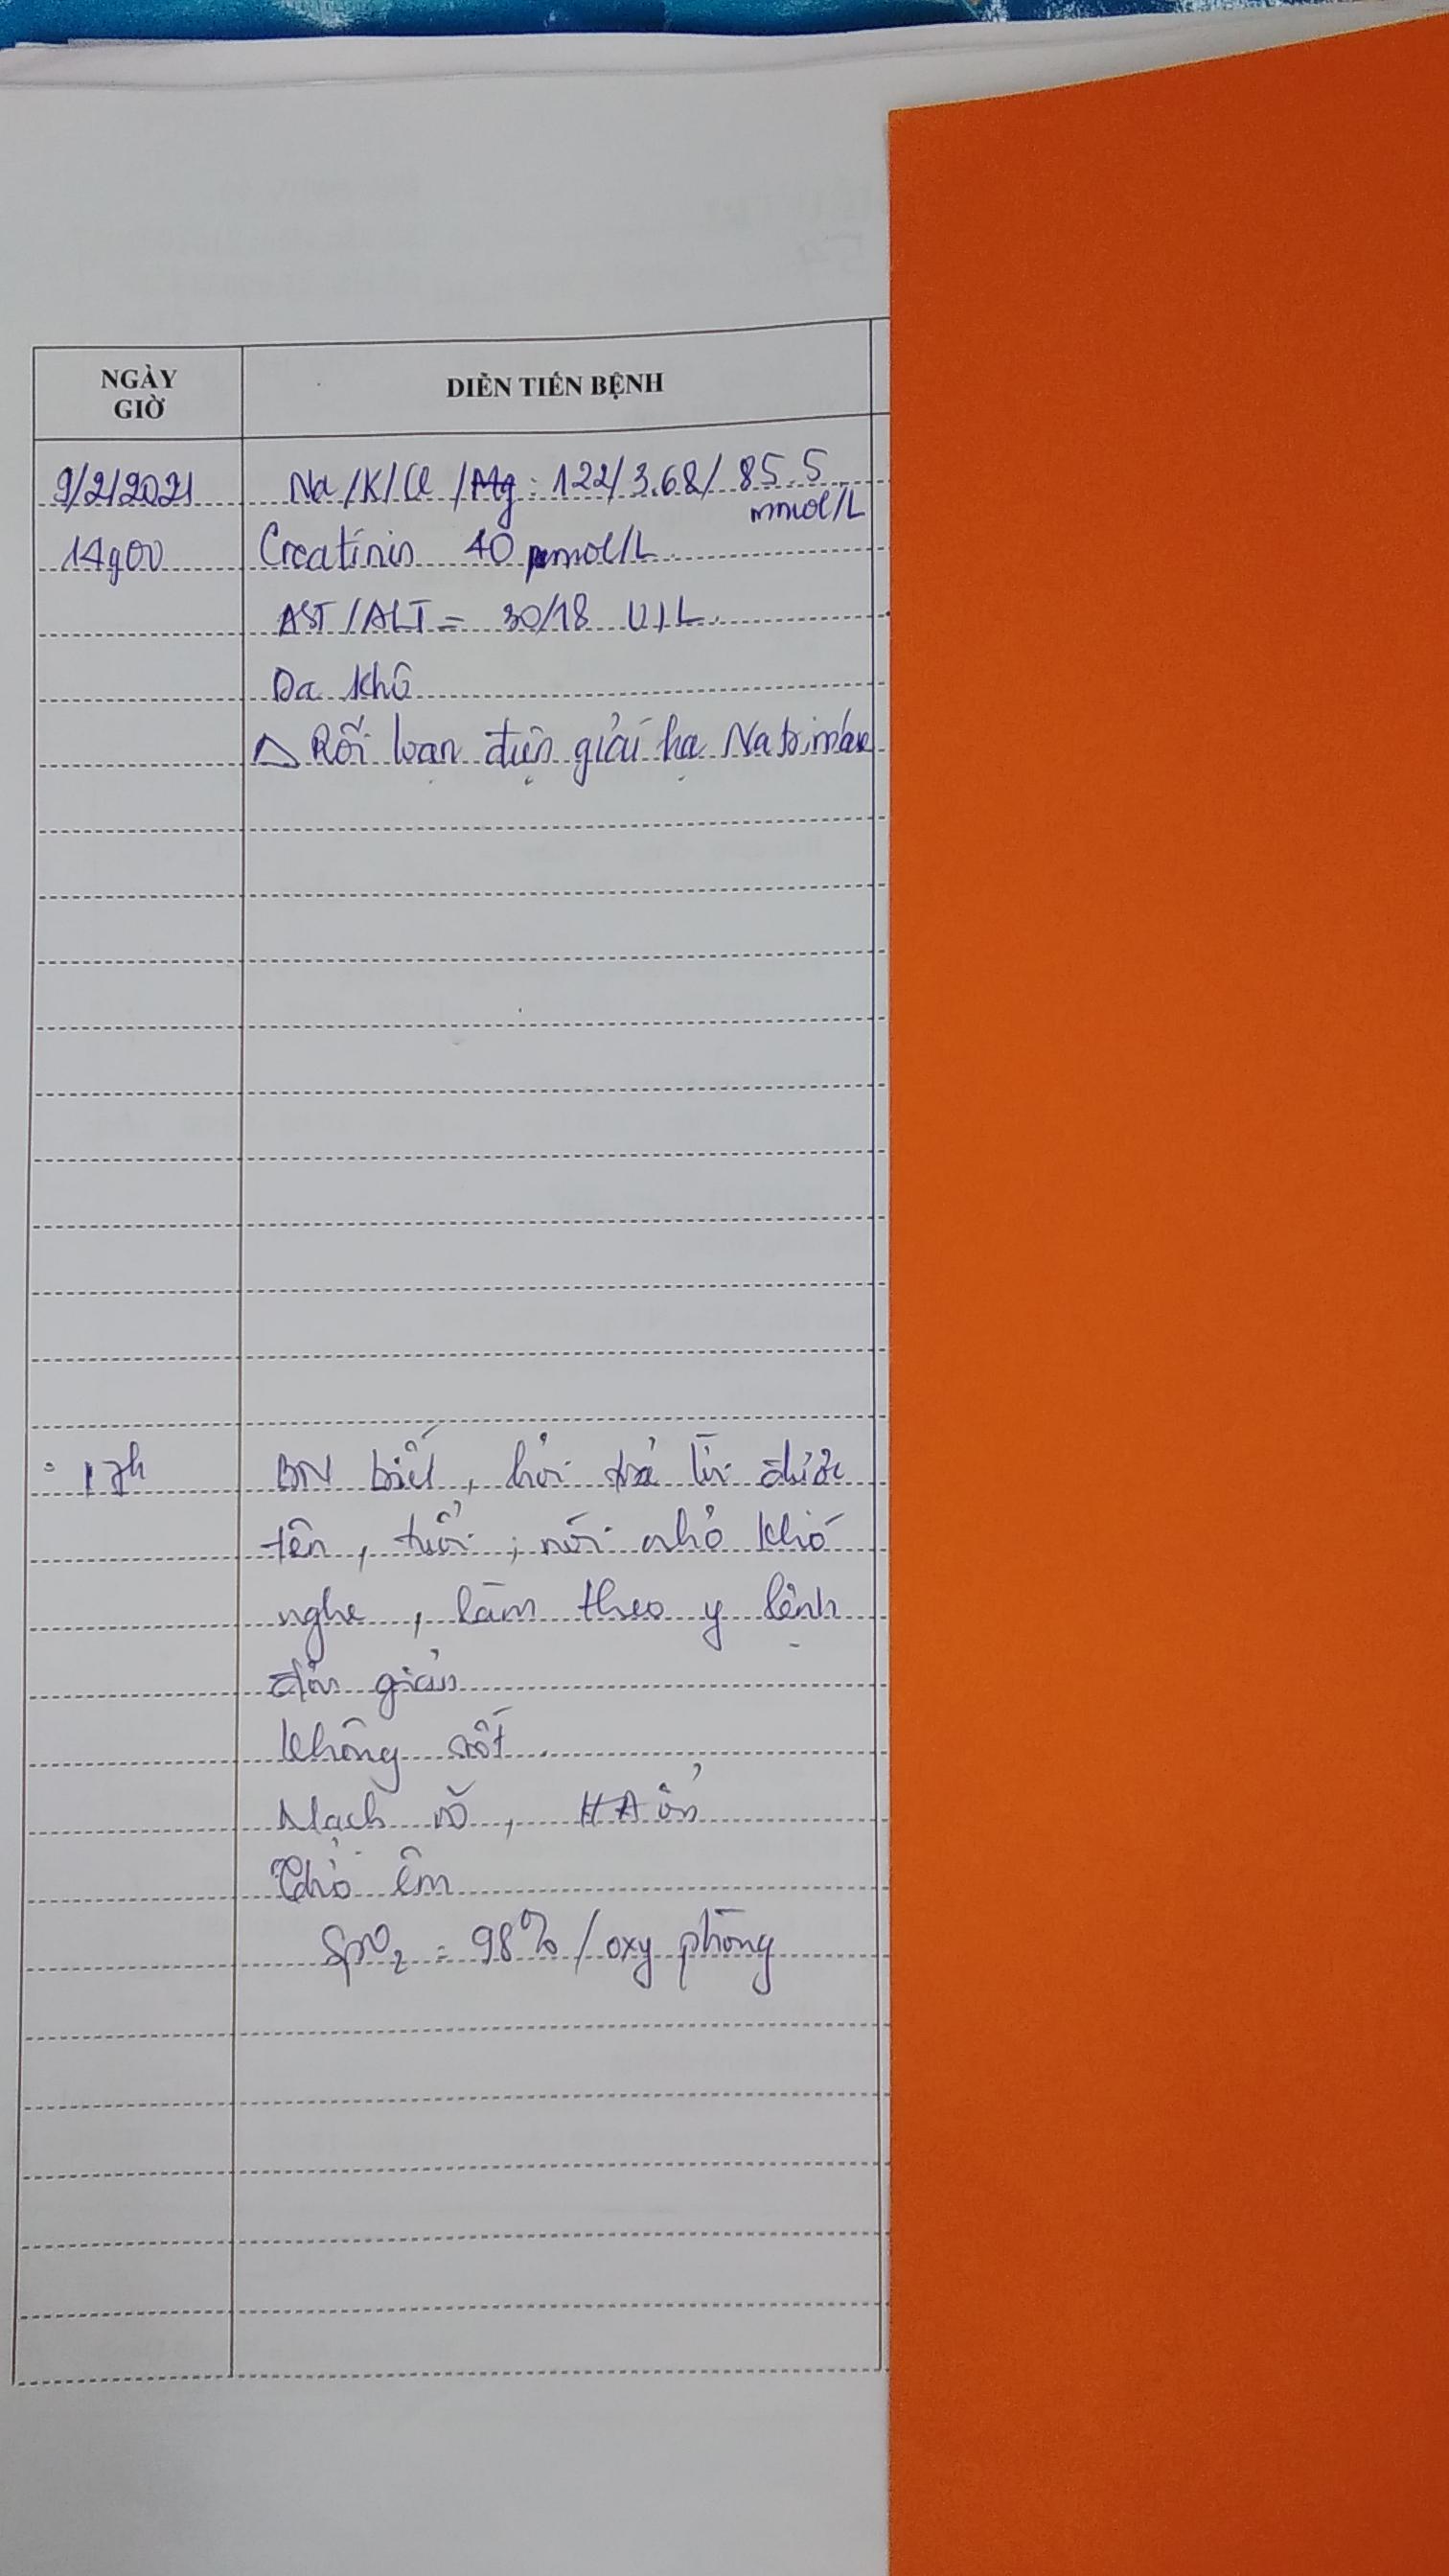 NGÀY
GIỜ
DIỄN TIẾN BỆNH
9/2/2021 Na/K/Cl/Mg: 122/3.68/85.5
mmol/L
14g00 Creatinin 40 µmol/L
AST/ALT = 30/18 U/L.
Da khô
△ Rối loạn điện giải hạ Natri máu
17h BN biết, hỏi trả lời được
tên, tuổi, nói nhỏ khó
nghe, làm theo y lệnh
đơn giản
Không sốt.
Mạch rõ, HA ổn
Thở êm
SpO₂ = 98% / oxy phòng